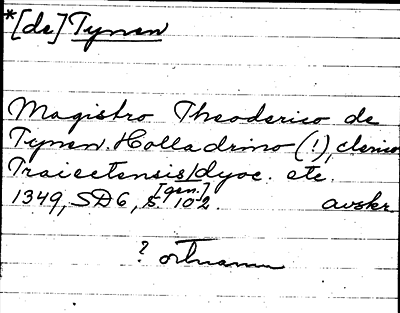 *[de] Tynen
Magistro Theoderico de
Tynen. Holladrino (!), clerico
Traiectensis/dyoc. etc.
[gen.]
1349, SD6, s. 102. avskr.
? ortnamn